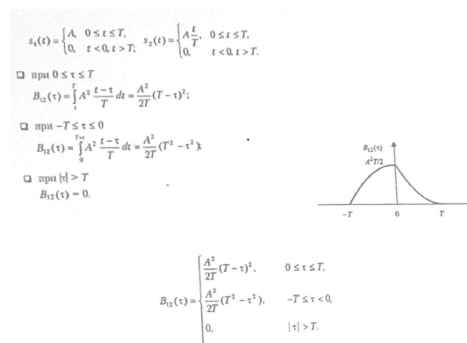 s₁(t) = { A, 0 ≤ t ≤ T, 0, t < 0, t > T; s₂(t) = { A t/T, 0 ≤ t ≤ T, 0, t < 0, t > T.
❑ при 0 ≤ τ ≤ T
B₁₂(τ) = ∫_τ^T A² (t − τ)/T dt = A²/2T (T − τ)²;
❑ при −T ≤ τ ≤ 0
B₁₂(τ) = ∫_0^{T+τ} A² (t − τ)/T dt = A²/2T (T² − τ²);
❑ при |τ| > T
B₁₂(τ) = 0.
B₁₂(τ)
A²T/2
−T 0 T
B₁₂(τ) = { A²/2T (T − τ)², 0 ≤ τ ≤ T,
A²/2T (T² − τ²), −T ≤ τ < 0,
0, |τ| > T.